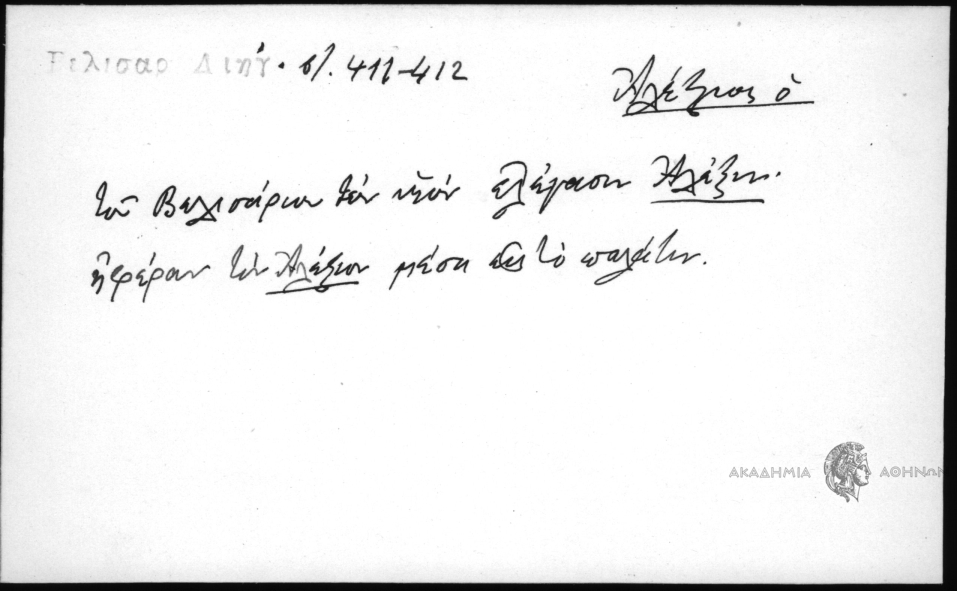 Βελισαρ Διηγ. στ. 411-412
Ἀλέξιος ὁ
τοῦ Βελισάριου τὸν υἱὸν ἐλέγασιν Ἀλέξιν.
ἠφέραν τὸν Ἀλέξιον μέσα εἰς τὸ παλάτιν.
ΑΚΑΔΗΜΙΑ ΑΘΗΝΩΝ